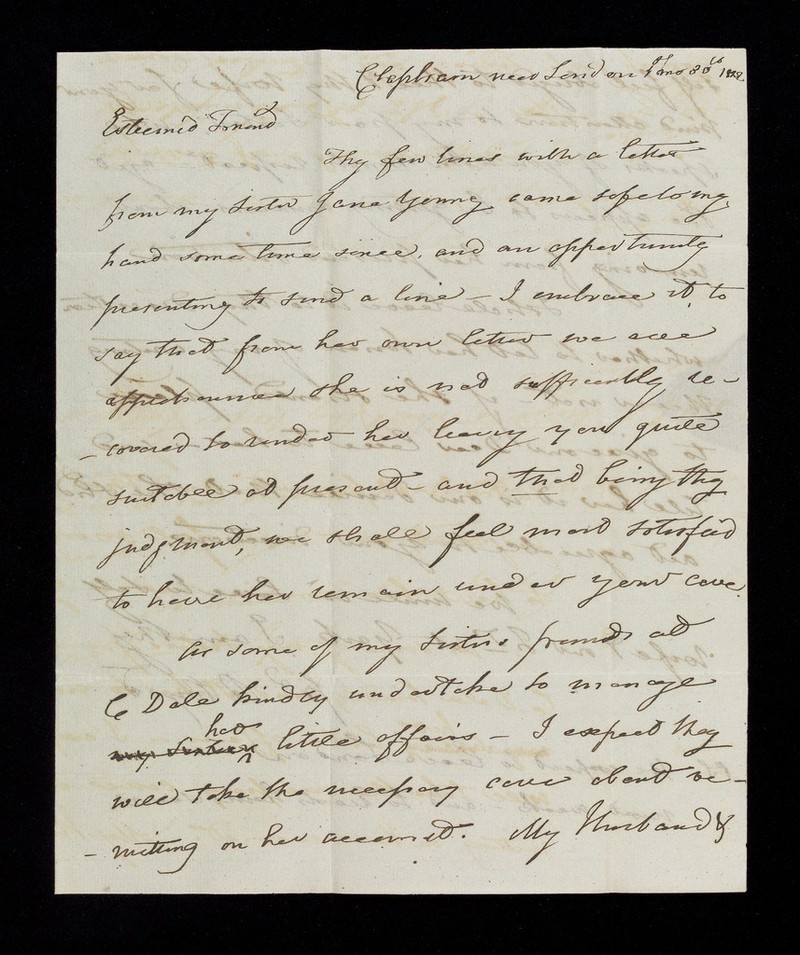 Clapham near London mo 30
Esteem'd Friend
Thy few lines with a letter
from my Sister Jane Young came safe to my
hand some time since, and an oppertunity
presenting to send a line – I embrace it, to
say that from her own letter we are
apprehensive she is not sufficiently re–
–covered to render her leaving you quite
suitable at present – and that being thy
judgment, we shall feel most satisfied
to have her remain under your care.
As some of my Sisters friends at
C Dale kindly undertake to manage
her
little affairs – I expect they
will take the necessary care about re–
–mitting on her account. My Husband &